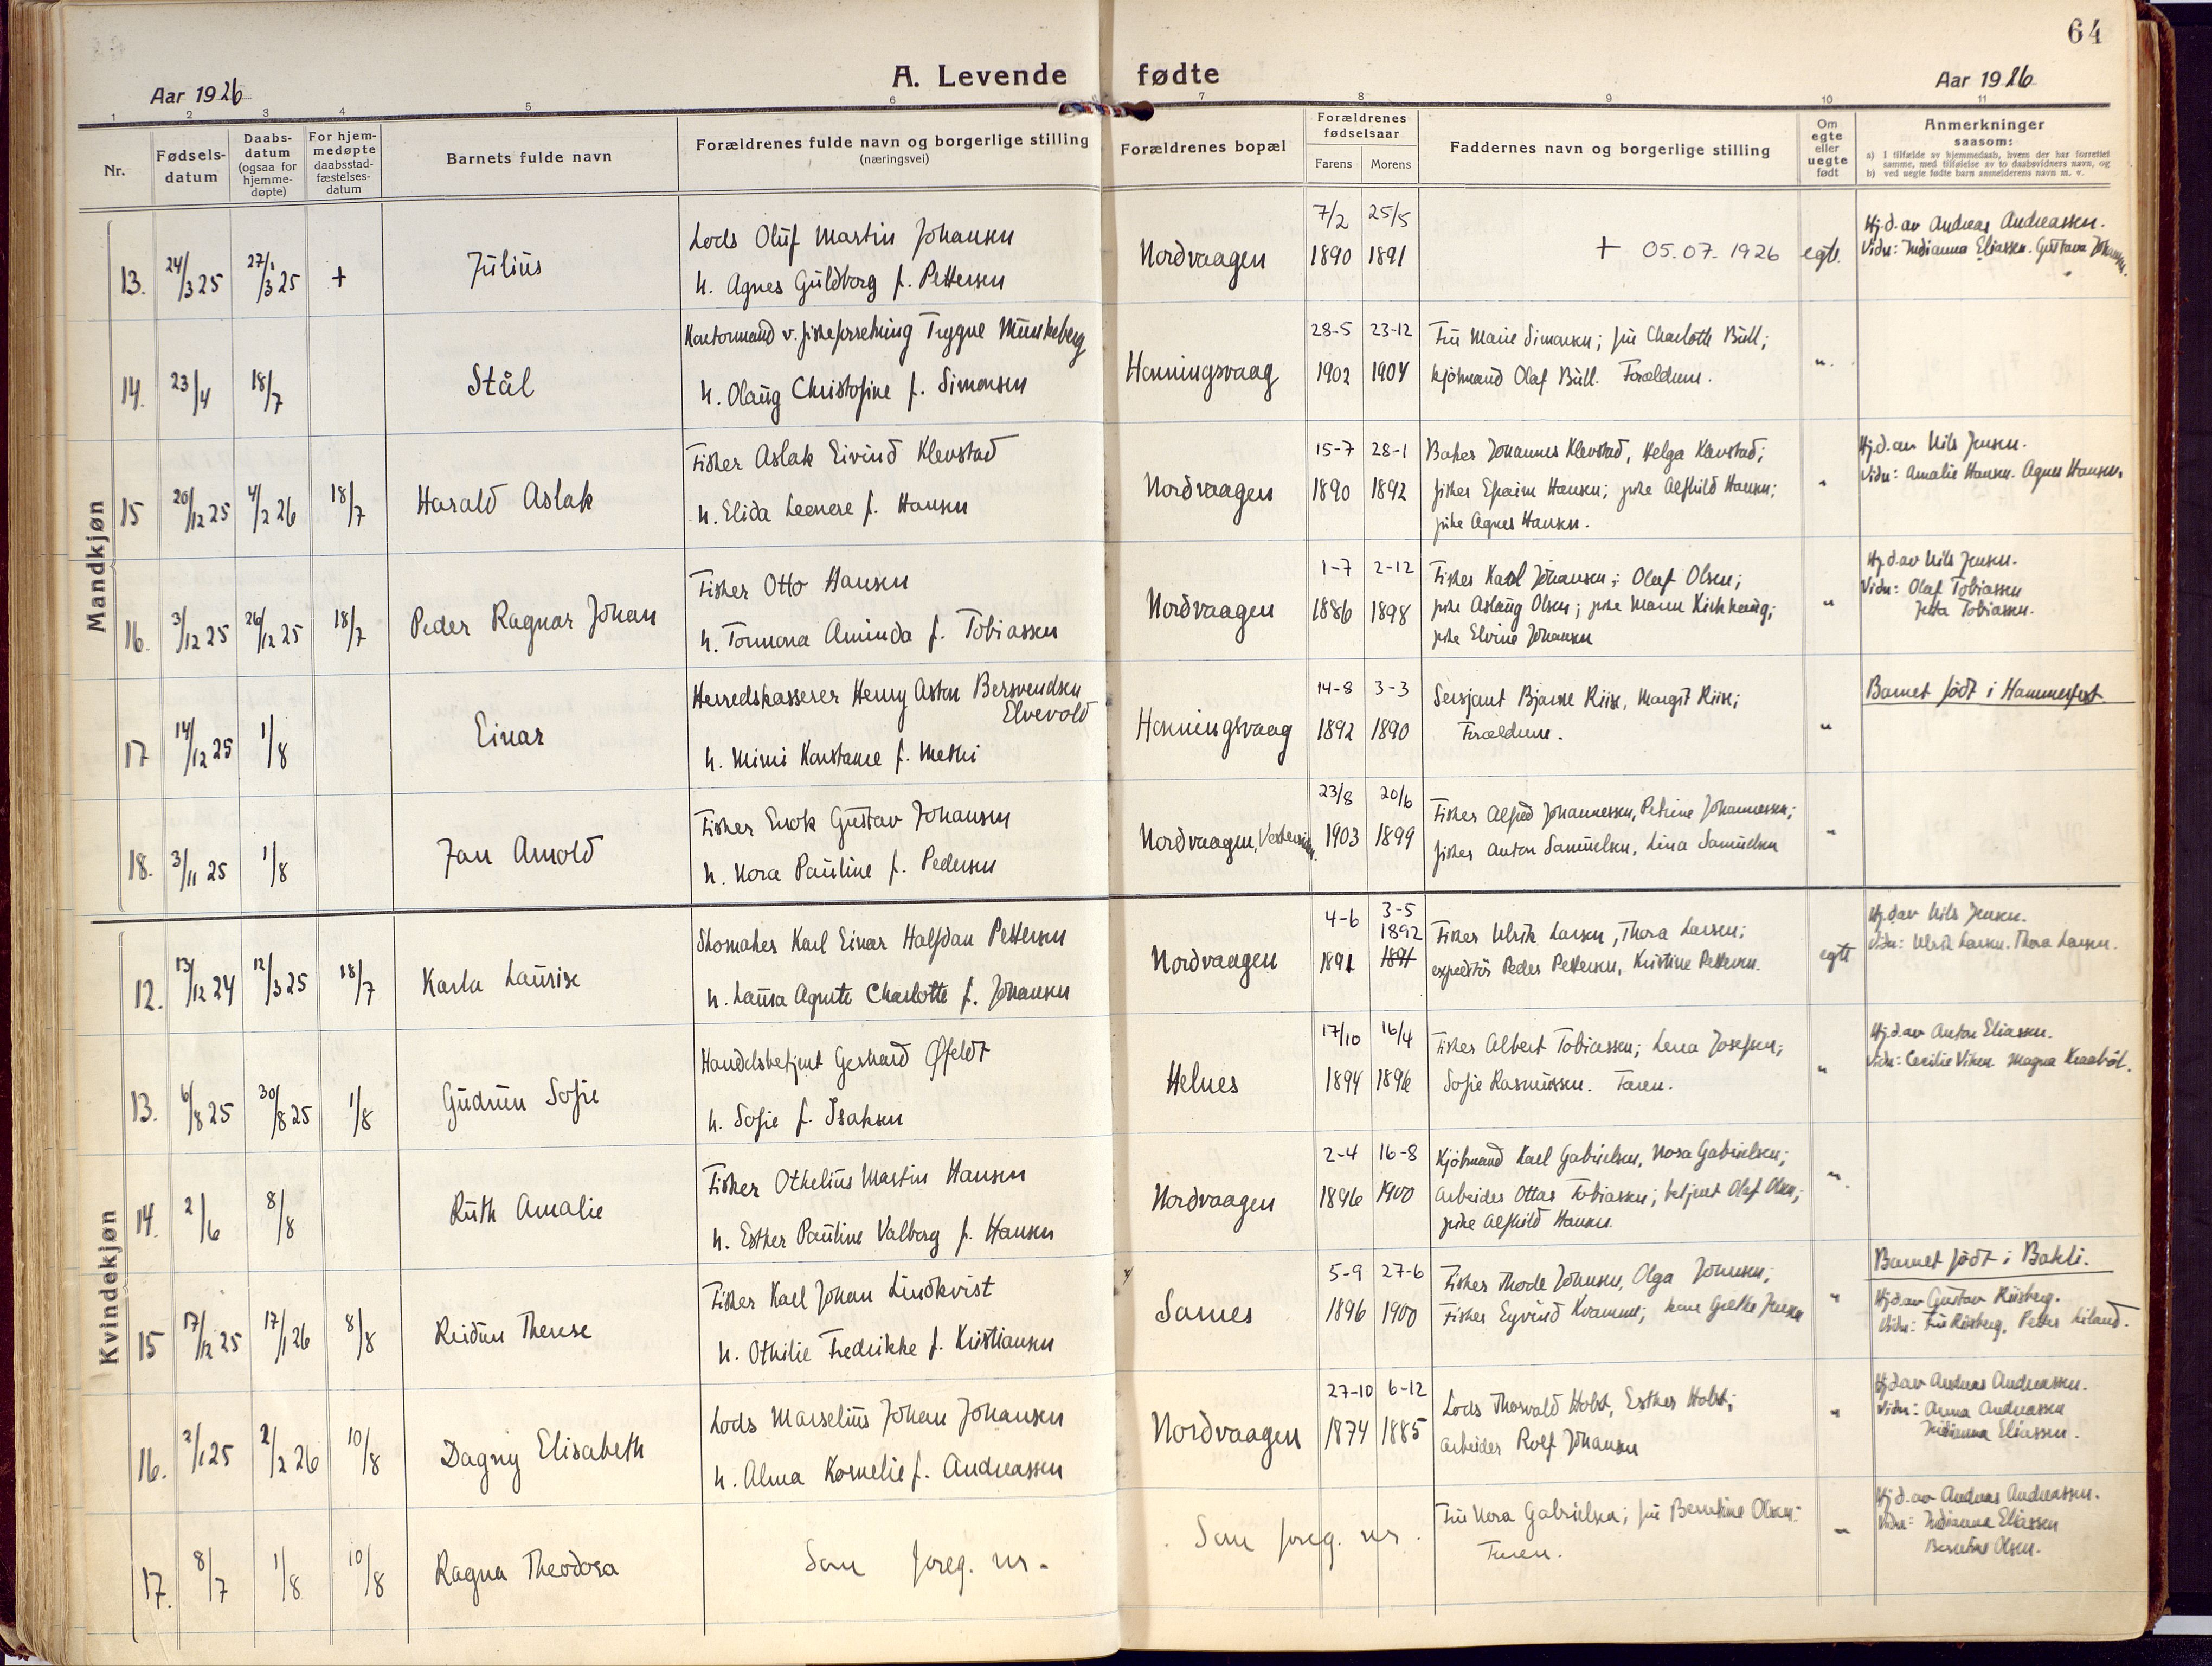 64
A. Levende fødte
Aar 1926
Aar 1926
1 2 3 4 5 6 7 8 9 10 11
Nr.
Fødsels-
datum
Daabs-
datum
(ogsaa for
hjemme-
døpte)
For hjem-
medøpte
daabsstad-
fæstelses-
datum
Barnets fulde navn
Forældrenes fulde navn og borgerlige stilling
(næringsvei)
Forældrenes bopæl
Forældrenes
fødselsaar
Farens Morens
Faddernes navn og borgerlige stilling
Om
egte
eller
uegte
født
Anmerkninger
saasom:
a) I tilfælde av hjemmedaab, hvem der har forrettet
samme, med tilføielse av to daabsvidners navn, og
b) ved uegte fødte barn anmelderens navn m. v.
Mandkjøn
13. 24/3 25 27/3 25 + Julius
Lods Oluf Martin Johansen
h. Agnes Guldborg f. Pettersen
Nordvaagen
7/2 25/5
1890 1891
+ 05.07.1926 egte
Hj.d. av Andreas Andreassen.
Vidn: Indianna Eliassen. Gustava Johansen.
14. 23/4 18/7 Stål
Kontormand v. fiskeforretning Trygve Munkeberg
h. Olaug Christofine f. Simonsen
Honningsvaag
28-5 23-12
1902 1904
Fru Marie Simonsen; fru Charlotte Bull;
kjøbmand Olaf Bull. Forældrene.
"
15 20/12 25 4/2 26 18/7 Harald Aslak
Fisker Aslak Eivind Klevstad
h. Elida Leenere f. Hansen
Nordvaagen
15-7 28-1
1890 1892
Baker Johannes Klevstad, Helga Klevstad;
fisker Efraim Hansen; pike Alfhild Hansen;
pike Agnes Hansen.
"
Hj.d. av Nils Jensen.
Vidn: Amalie Hansen. Agnes Hansen.
16. 3/12 25 26/12 25 18/7 Peder Ragnar Johan
Fisker Otto Hansen
h. Tormona Aminda f. Tobiassen
Nordvaagen
1-7 2-12
1886 1898
Fisker Karl Johansen; Olaf Olsen;
pike Aslaug Olsen; pike Maren
pike Elvine Johansen
"
Hj.d. av Nils Jensen.
Vidn: Olaf Tobiassen
Tobiassen.
17 14/12 25 1/8 Einar
Herredskasserer Henry Aston Bersvendsen
Elvevold
h. Mimi Konstanse f. Methi
Honningsvaag
14-8 3-3
1892 1890
Sersjant Bjarne Riise, Margit Riise;
Forældrene.
"
Barnet født i Hammerfest.
18. 3/11 25 1/8 Jan Arnold
Fisker Enok Gustav Johansen
h. Nora Pauline f. Pedersen
Nordvaagen,
23/8 20/6
1903 1899
Fisker Alfred Johannessen, Petrine Johannessen;
fisker Anton Samuelsen, Lina Samuelsen
"
Kvindekjøn
12. 13/12 24 12/3 25 18/7 Karla Laurise
Skomaker Karl Einar Halfdan Pettersen
h. Laura Agnete Charlotte f. Johansen
Nordvaagen
4-6 3-5
1892
1891 1891
Fisker Ulrik Larsen, Thora Larsen;
expeditør Peder Pettersen, Kristine Pettersen.
egte
Hj.d. av Nils Jensen.
Vidn: Ulrik Larsen. Thora Larsen.
13. 6/8 25 30/8 25 1/8 Gudrun Sofie
Handelsbetjent Gerhard Øfeldt
h. Sofie f. Isaksen
Helnes
17/10 16/4
1894 1896
Fisker Albert Tobiassen; Lena Josefsen;
Sofie Rasmussen. Faren.
"
Hj.d. av Anton Eliassen.
Vidn: Cecilie Viken Magna Kraabøl.
14. 2/6 8/8 Ruth Amalie
Fisker Othelius Martin Hansen
h. Esther Pauline Valborg f. Hansen
Nordvaagen
2-4 16-8
1896 1900
Kjøbmand Karl Gabrielsen, Nora Gabrielsen;
arbeider Ottar Tobiassen; betjent Olaf Olsen;
pike Alfhild Hansen.
"
15 17/12 25 17/1 26 8/8 Reidun Therese
Fisker Karl Johan Lindkvist
h. Othilie Fredrikke f. Kristiansen
Sarnes
5-9 27-6
1896 1900
Fisker Thode Johnsen, Olga Johnsen;
Fisker Eyvind Kvamme; Grethe Jensen
"
Barnet født i Bakli.
Hj.d av Gustav Risberg.
Vidn: Fru Risberg, Petter Liland.
16. 2/1 25 2/2 26 10/8 Dagny Elisabeth
Lods Marselius Johan Johansen
h. Alma Kornelie f. Andreassen
Nordvaagen
27-10 6-12
1874 1885
Lods Thorvald Holst, Esther Holst;
arbeider Rolf Johansen
"
Hj.d av Andreas Andreassen.
Vidn: Anna Andreassen
Indianna Eliassen.
17. 8/7 1/8 10/8 Ragna Theodora
Som foreg. nr.
Som foreg. nr.
Fru Nora Gabrielsen; fru Berntine Olsen.
Faren.
"
Hj.d. av Andreas Andreassen.
Vidn: Indianna Eliassen
Berntine Olsen.